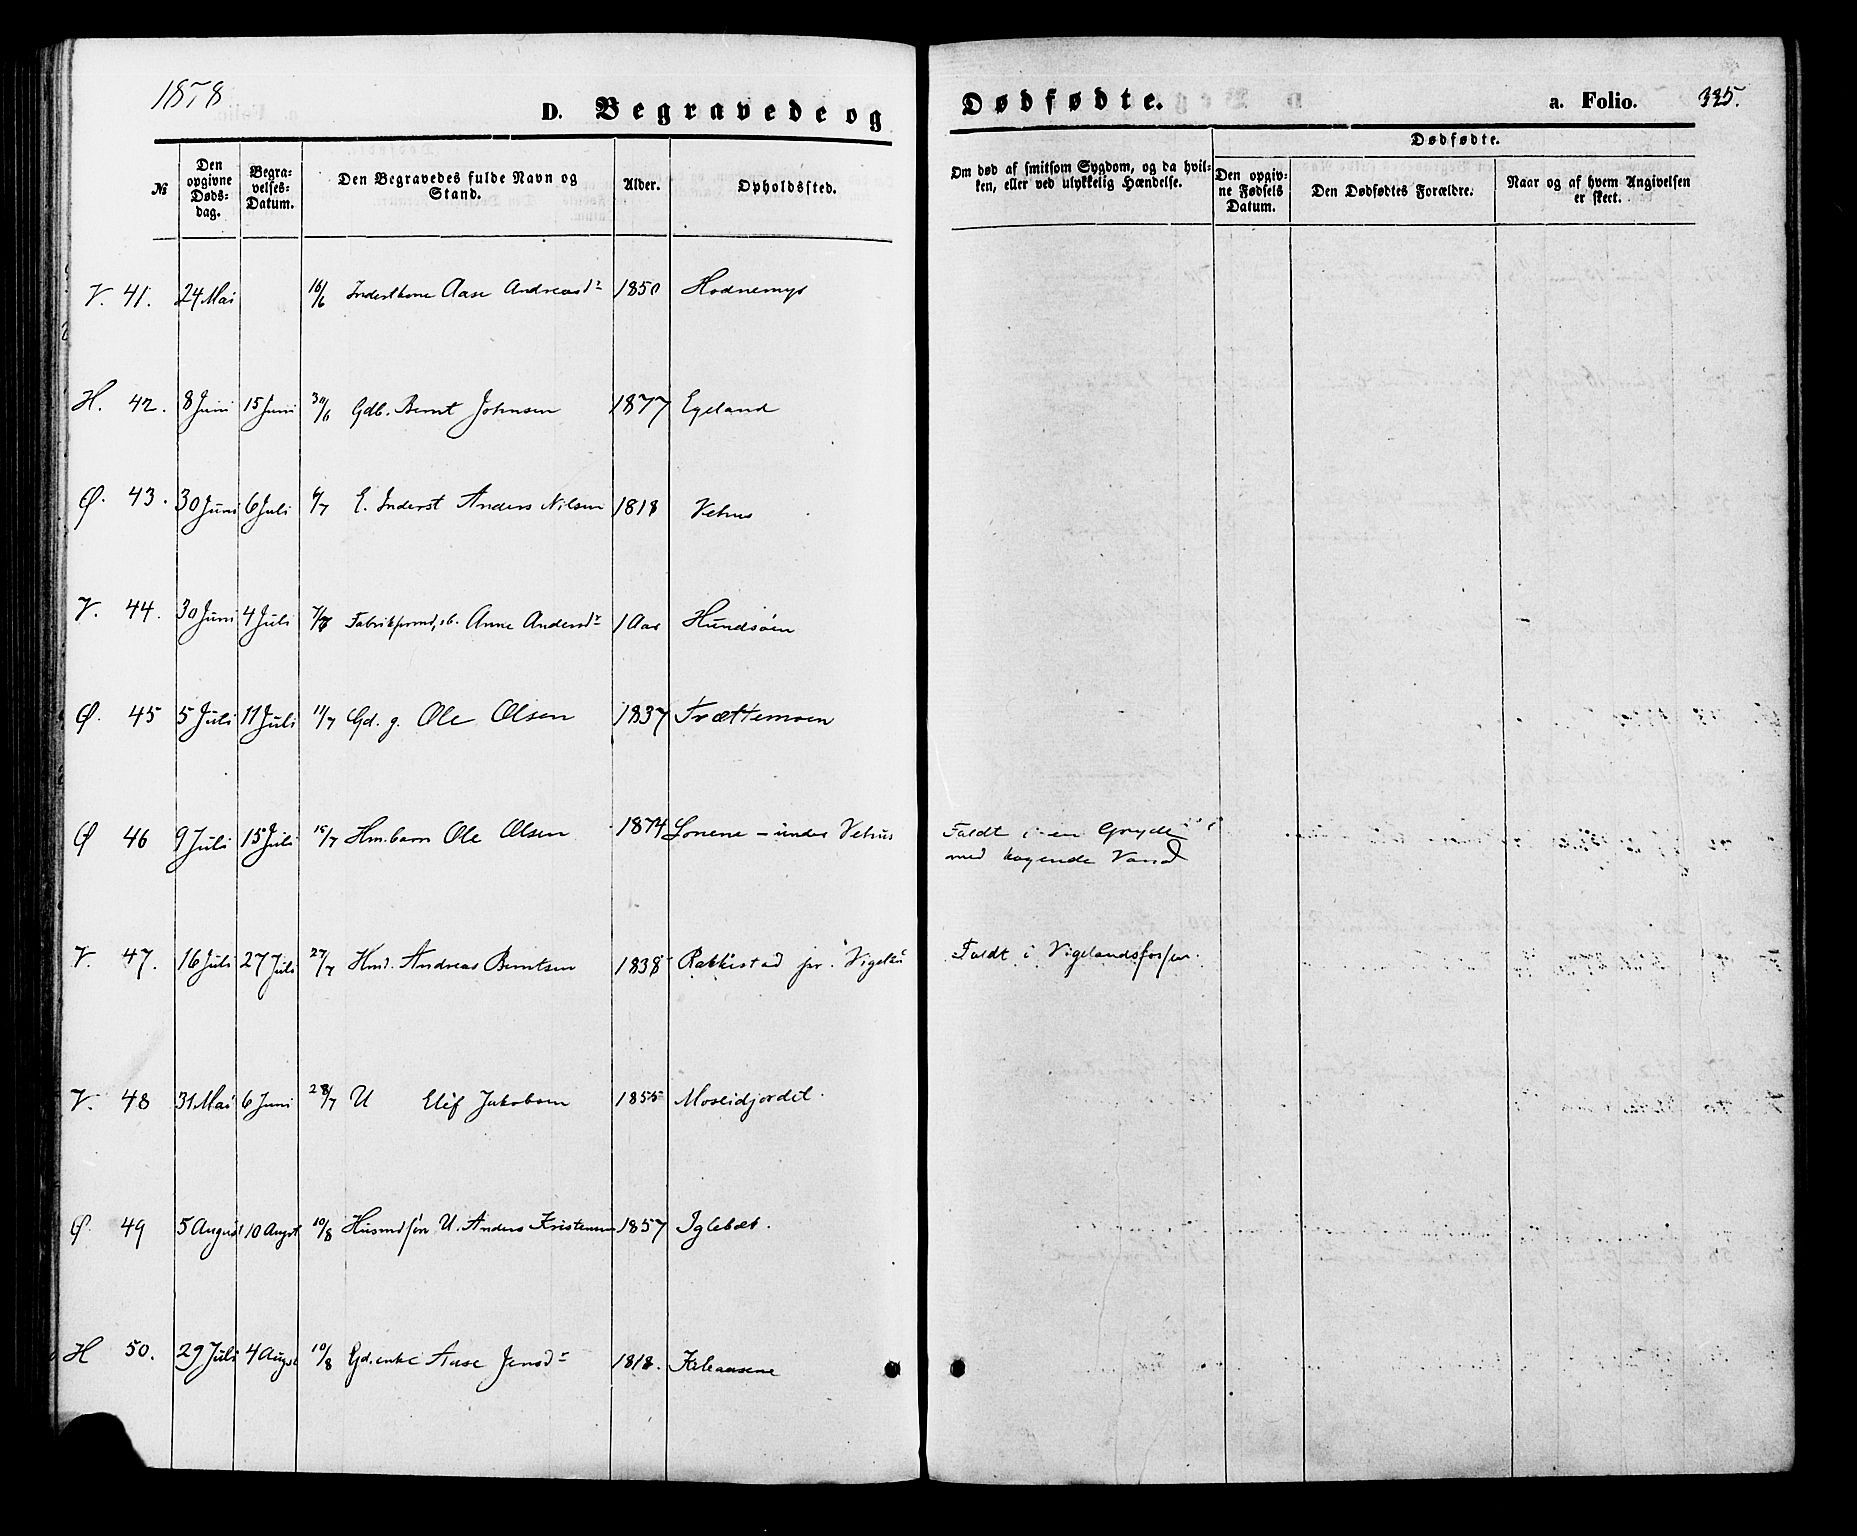 1878
D. Begravede og Dødfødte. a. Folio. 335.
Dødfødte.
№ Den opgivne Døds-dag. Begra-velses-Datum. Den Begravedes fulde Navn og Stand. Alder. Opholdssted. Om død af smitsom Sygdom, og da hvil-ken, eller ved ulykkelig Hændelse. Den opgiv-ne Fødsels Datum. Den Dødfødtes Forældre. Naar og af hvem Angivelsen er skeet.
V. 41. 24 Mai 16/6 Inderstkone Aase Andreasdr 1850 Hodnemyr
H. 42. 8 Juni 15 Juni 30/6 Gdb. Bernt Johnsen 1877 Egeland
Ø. 43. 30 Juni 6 Juli 6/7 E. Inderst Anders Nilsen 1818 Vehus
V. 44. 30 Juni 4 Juli 7/7 Anne Andersdr 1 Aar Hundsøen
Ø. 45 5 Juli 11 Juli 11/7 Gd. g. Ole Olsen 1837 Trættemoen
Ø 46 9 Juli 15 Juli 15/7 Hm.barn Ole Olsen 1874 Lonene – under Vehus Faldt i en Gryde
med kogende Vand
V. 47. 16 Juli 27 Juli 27/7 Hmd. Andreas Berntsen 1838 Rakkestad Faldt i Vigelandsfossen.
V. 48 31 Mai 6 Juni 28/7 U Elef Jakobsen 1855 Moseidjordet.
Ø. 49 5 August 10 Augst 10/8 Husmdsøn U. Anders Kristensen 1857 Iglebæk.
H 50. 29 Juli 4 Augst 10/8 Gd.enke Aase Jensdr 1818. Kileaasene